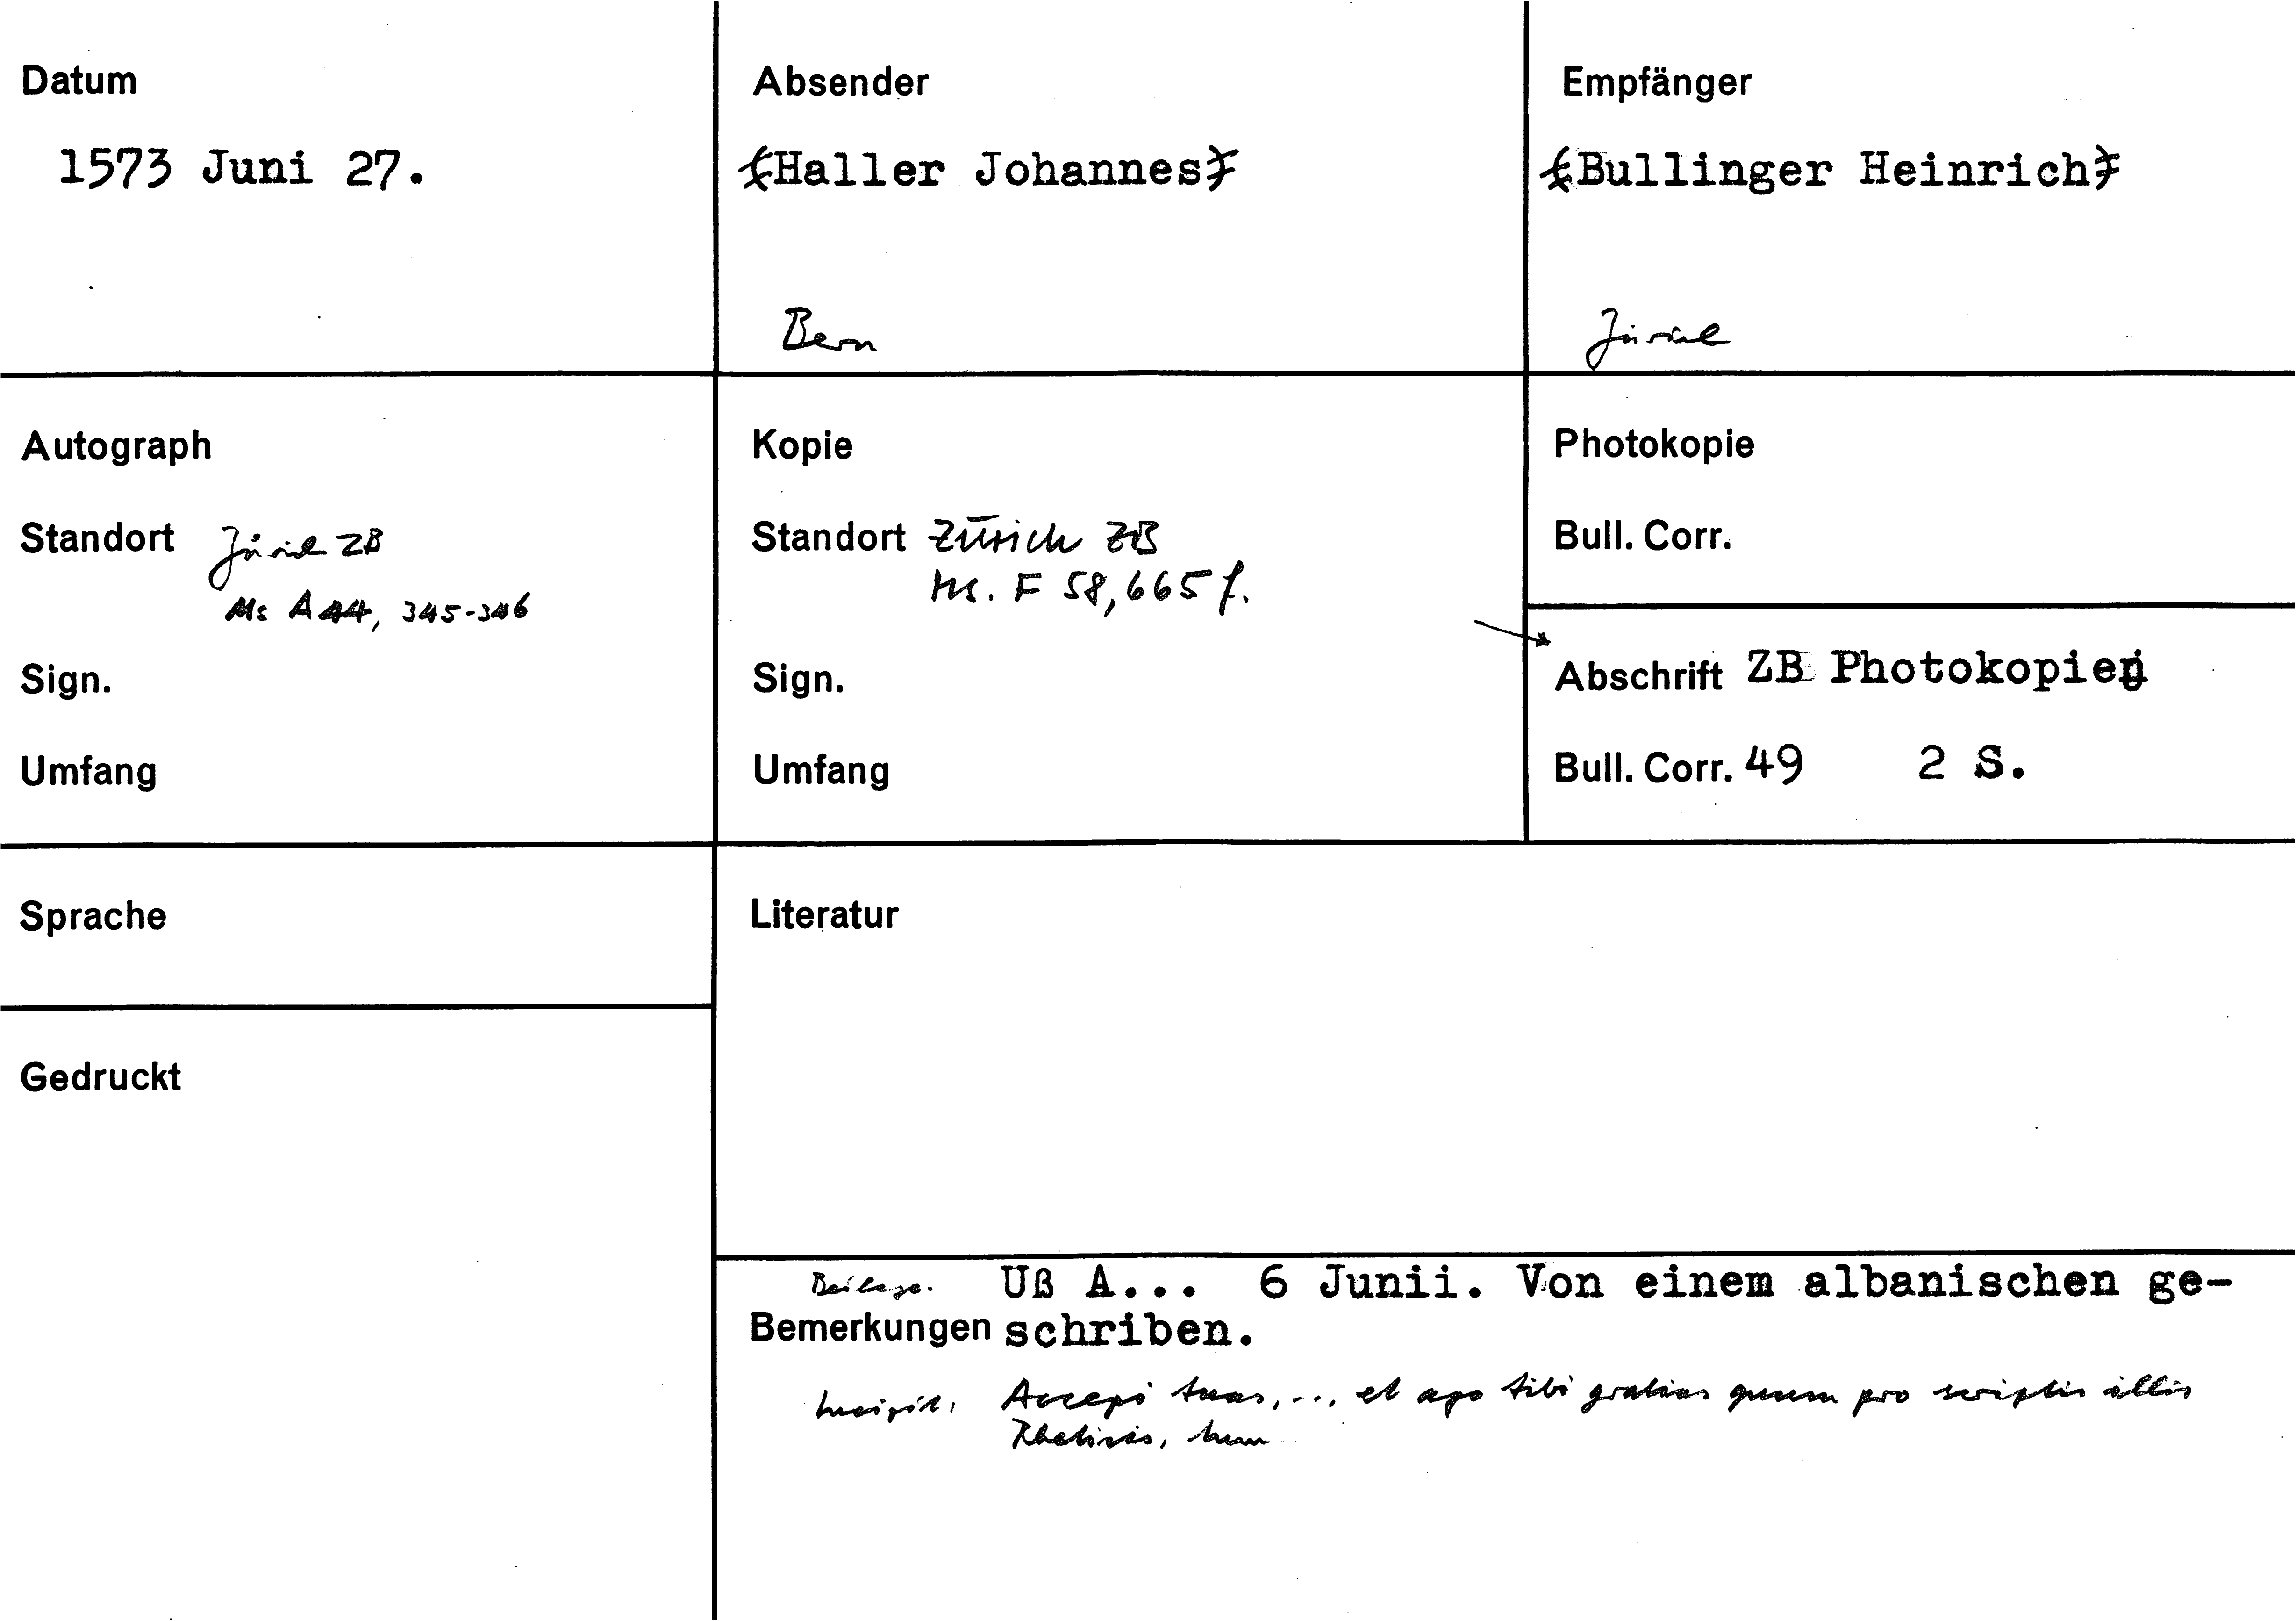 Datum
1573 Juni 27.
Absender
(Haller Johannes)
Bern
Empfänger
(Bullinger Heinrich)
Zürich
Autograph
Standort Zürich ZB
Ms A 44, 345-346
Sign.
Umfang
Kopie
Standort Zürich ZB
Ms. F 58, 665 f.
Sign.
Umfang
Photokopie
Bull. Corr.
Abschrift ZB Photokopien
Bull. Corr. 49 2 S.
Sprache
Literatur
Gedruckt
Beilage. Uß A... 6 Junii. Von einem albanischen ge-
Bemerkungen schriben.
Incipit: Accepi tuas, ..., et ago tibi gratias quum pro scriptis illis
Rheticis, tum